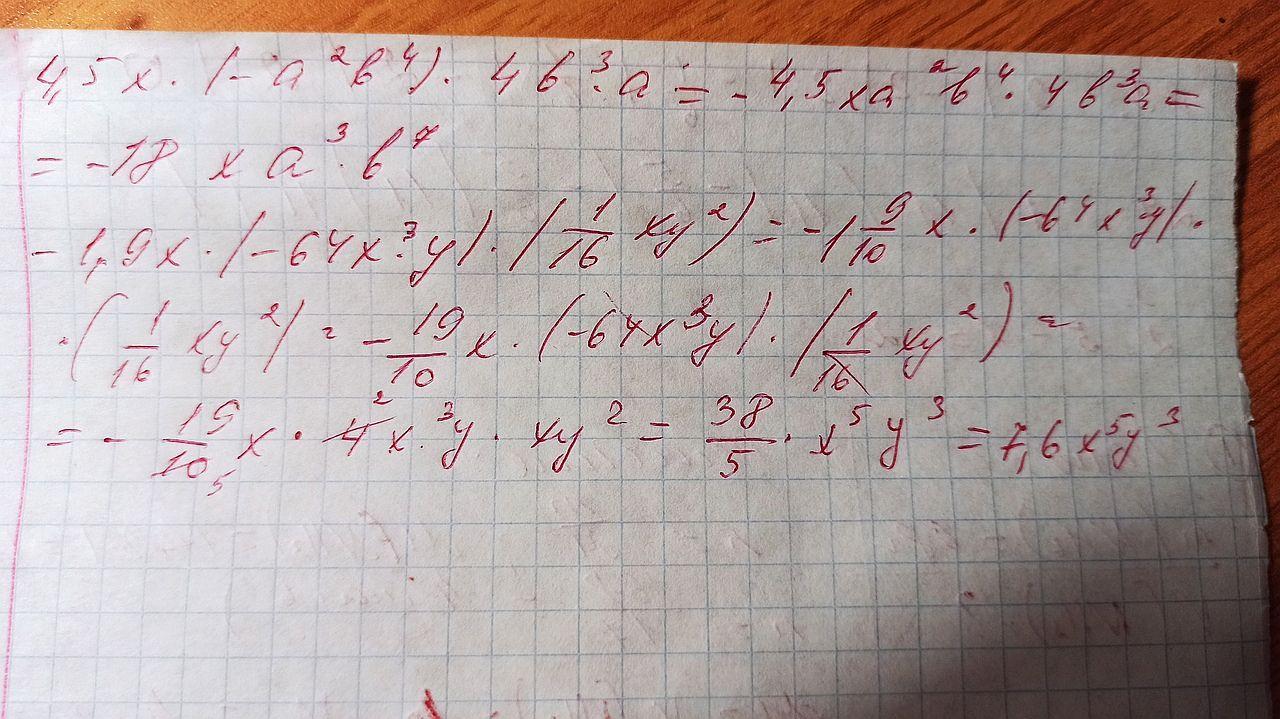 4,5x·(-a²b⁴)·4b³·a=-4,5xa²b⁴·4b³a=
=-18xa³·b⁷
-1,9x·(-64x³y)·(1/16 xy²)=-1 9/10 x·(-64x³y)·
·(1/16 xy²)=-19/10 x·(-64x³y)·(1/16 xy²)=
=-19/10 5 x·4 2 x·³y·xy²=38/5·x⁵y³=7,6x⁵y³